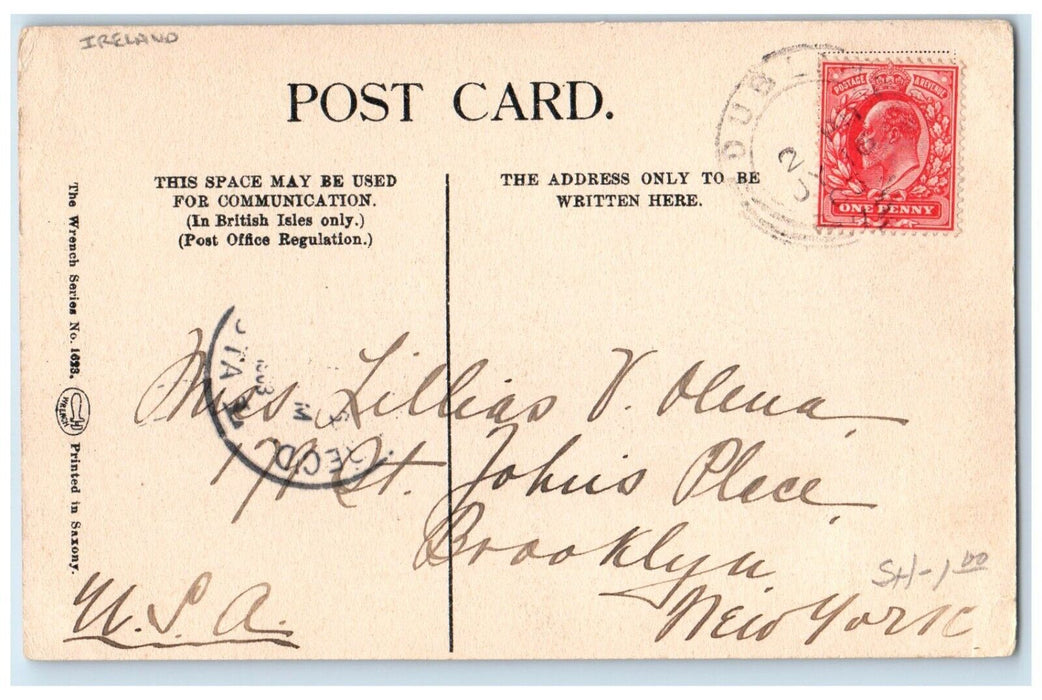 IRELAND
POST CARD.
THIS SPACE MAY BE USED
FOR COMMUNICATION.
(In British Isles only.)
(Post Office Regulation.)
THE ADDRESS ONLY TO BE
WRITTEN HERE.
DUBLIN
POSTAGE & REVENUE
ONE PENNY
The Wrench Series No. 1623.
WRENCH
Printed in Saxony.
STA
REC'D
Miss Lillias V. Olena
St. Johns Place
Brooklyn
New York
U.S.A.
SH-1 00